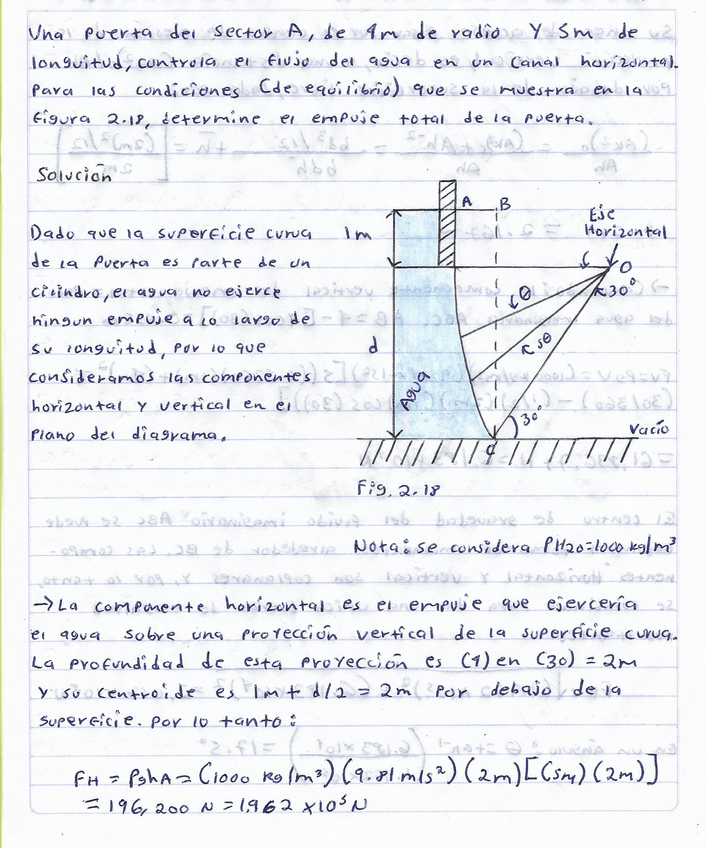 Una puerta del sector A, de 4m de radio Y 5m de
longuitud, controla el flujo del agua en un canal horizontal.
Para las condiciones (de equilibrio) que se muestra en la
figura 2.18, determine el empuje total de la puerta.
Solución
Dado que la superficie curva
de la puerta es parte de un
cilindro, el agua no ejerce
ningun empuje a lo largo de
su longuitud, por lo que
consideramos las componentes
horizontal y vertical en el
plano del diagrama.
A
B
Eje
Horizontal
1m
O
30°
θ
d
Agua
30°
Vacío
C
Fig. 2.18
Nota: se considera PH2O=1000 kg/m³
→La componente horizontal es el empuje que ejercería
el agua sobre una proyección vertical de la superficie curva.
La profundidad de esta proyección es (4) en (30) = 2m
Y su centroide es 1m + d/2 = 2m por debajo de la
superficie. por lo tanto:
FH = PghA = (1000 kg/m³)(9.81 m/s²)(2m)[(5m)(2m)]
= 196,200 N = 1.962 x10⁵ N